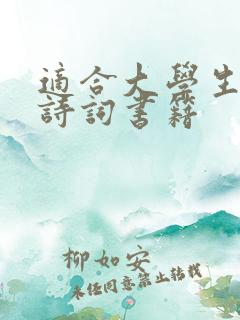 適合大學生
詩詞書籍
柳如安
未经同意禁止转载